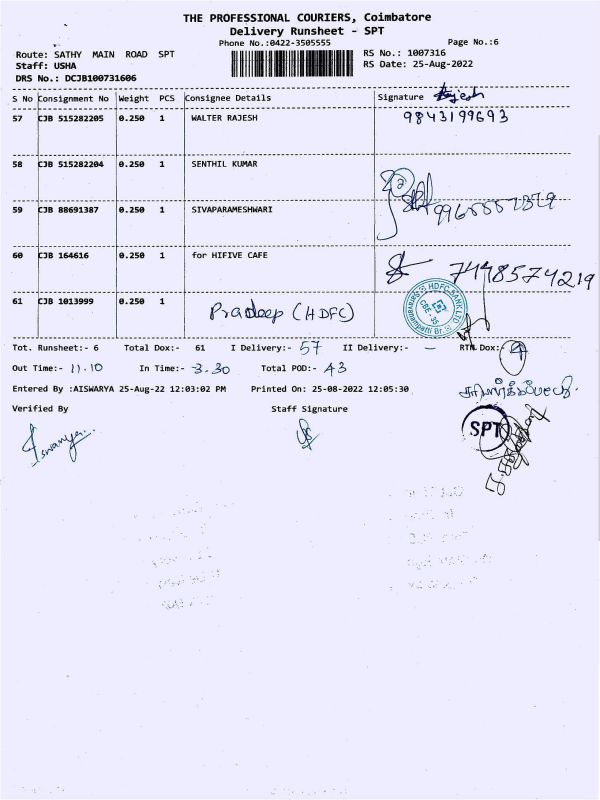 THE PROFESSIONAL COURIERS, Coimbatore
Delivery Runsheet - SPT
Phone No.:0422-3505555 Page No.:6
Route: SATHY MAIN ROAD SPT RS No.: 1007316
Staff: USHA RS Date: 25-Aug-2022
DRS No.: DCJB100731606
S No Consignment No Weight PCS Consignee Details Signature Rajesh
57 CJB 515282205 0.250 1 WALTER RAJESH 9843199693
58 CJB 515282204 0.250 1 SENTHIL KUMAR
59 CJB 88691387 0.250 1 SIVAPARAMESHWARI
60 CJB 164616 0.250 1 for HIFIVE CAFE 7448574219
61 CJB 1013999 0.250 1 Pradeep (HDFC)
HDFC BANK LTD
Tot. Runsheet:- 6 Total Dox:- 61 I Delivery:- 57 II Delivery:- - RTN Dox:- 4
Out Time:- 11.10 In Time:- 3.30 Total POD:- 43
Entered By :AISWARYA 25-Aug-22 12:03:02 PM Printed On: 25-08-2022 12:05:30
Verified By Staff Signature
SPT